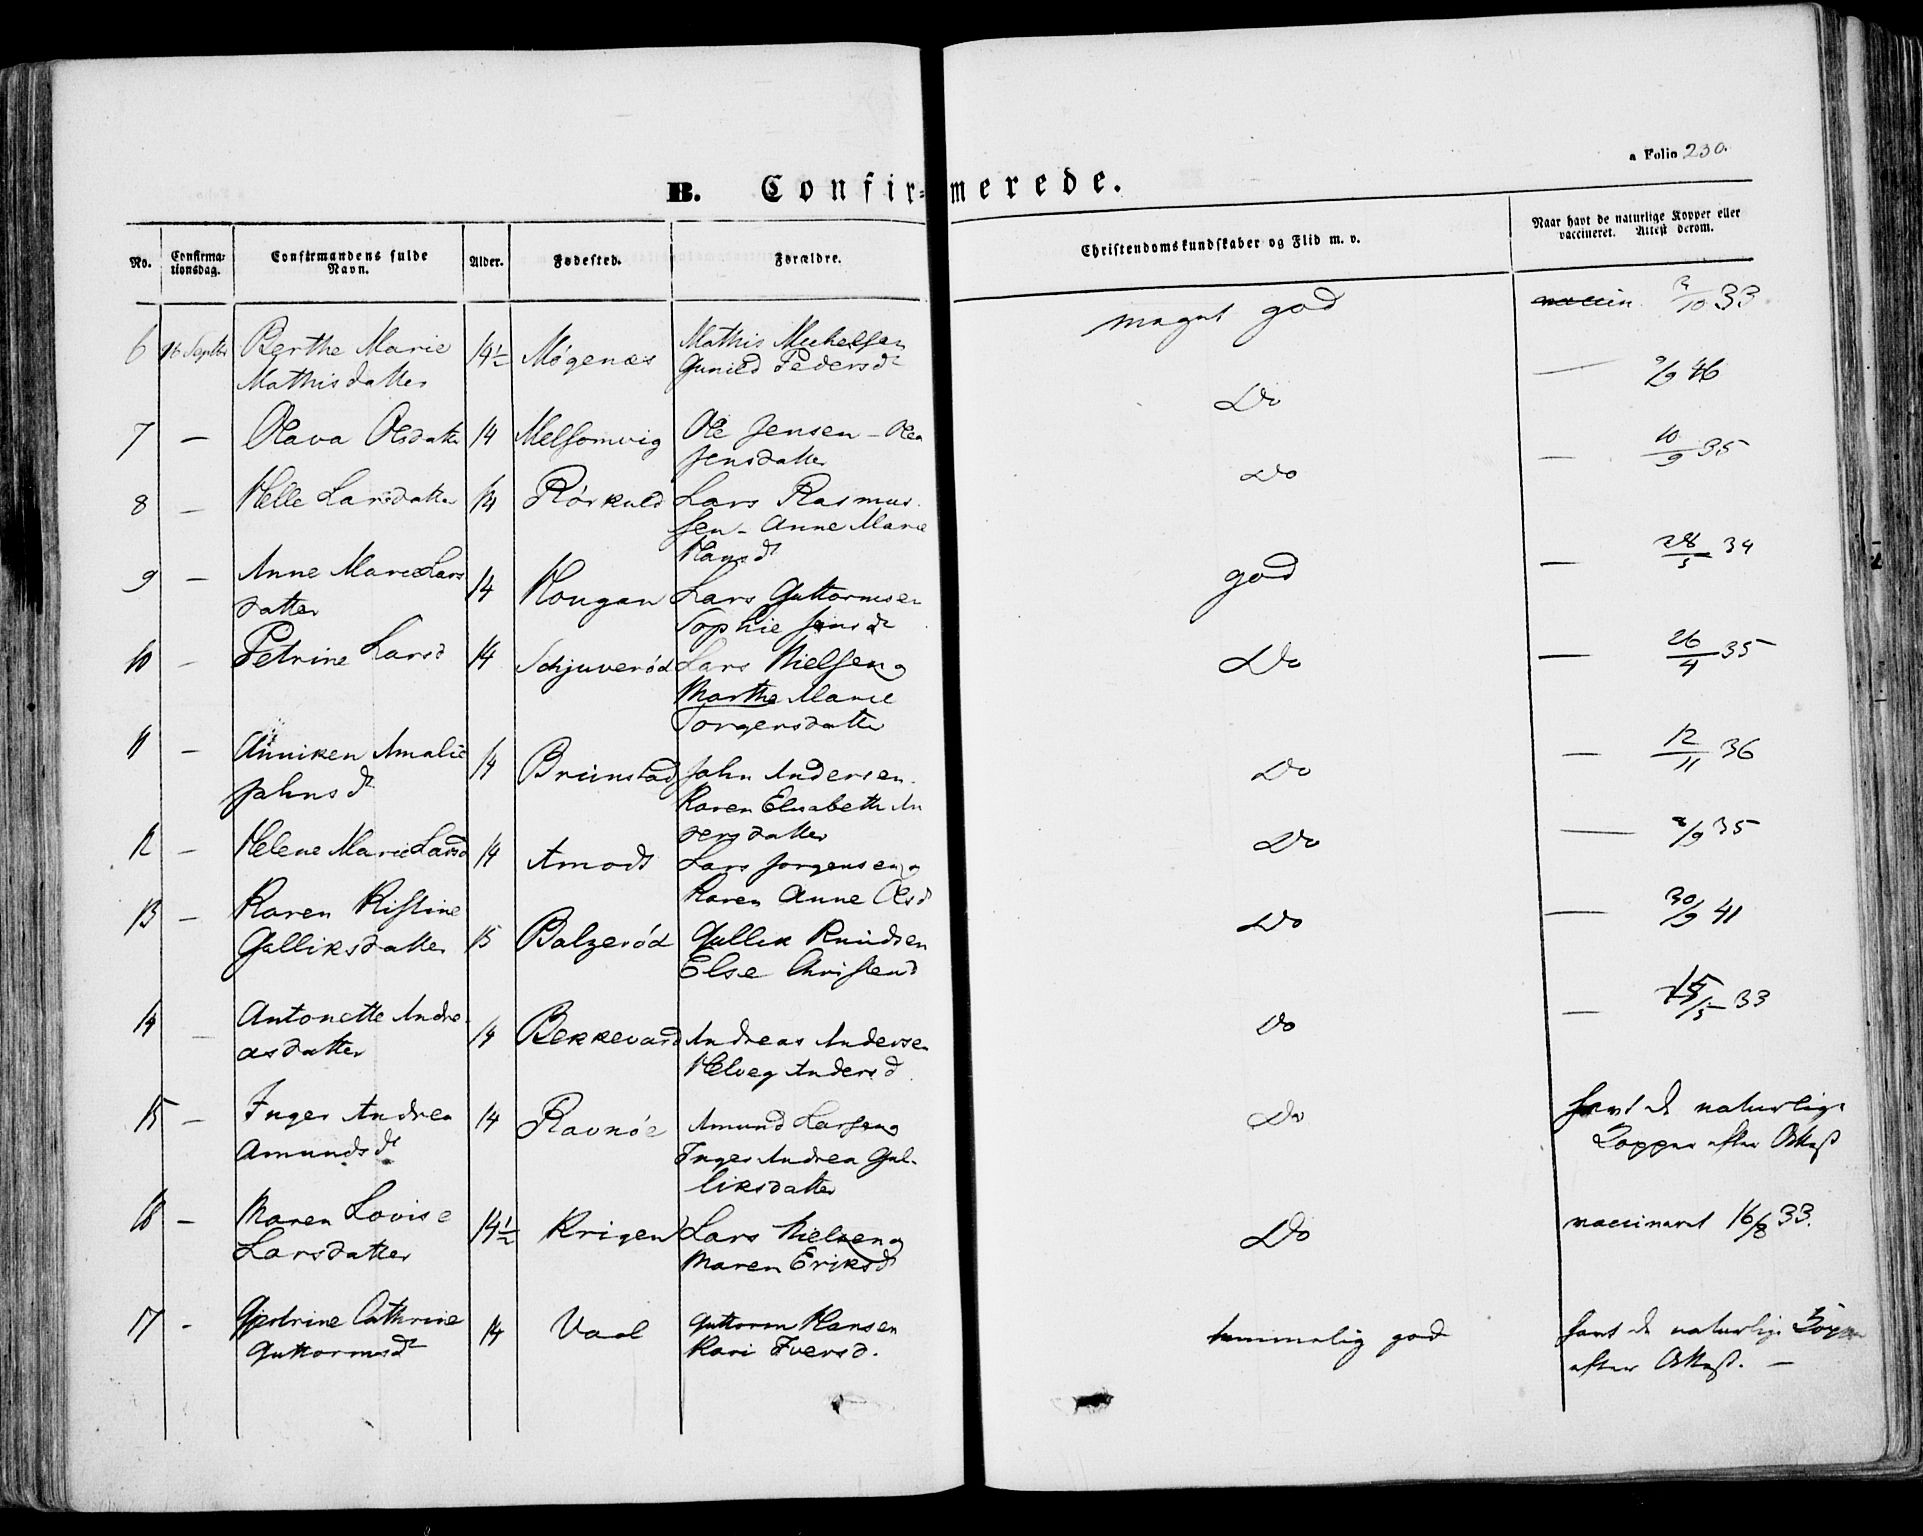 a Folio 230.
B. Confir=merede.
No. Confirma-tionsdag. Confirmandens fulde Navn. Alder. Fødested. Forældre. Christendomskundskaber og Flid m. v. Naar havt de naturlige Kopper eller vaccineret. Attest derom.
6 16 Septbr Berthe Marie 14½ Møgenæs Mathis Mickelsen meget god vaccin. 10 33
Mathisdatter Gunild Pedersdr
7 — Olava Olsdatter 14 Melsomvig Ole Jensen – Olea Do — 9 46
Jensdatter
8 — Helle Larsdatter 14 Rörkuld Lars Rasmus- Do — 10/9 35
sen – Anne Marie
Hansdr
9 — Anne Marie Lars 14 Hougan Lars Guttormsen god — 28/5 34
datter Sophie Jensdr
10 — Petrine Larsd 14 Schjuverød Lars Nielsen og Do — 26/4 35
Marthe Marie
Torgersdatter
11 — Anniken Amalie 14 Brunstad John Andersen Do — 12/11 36
Johnsdr Karen Elisabeth An
dersdatter
12 — Helene Marie Larsd 14 Amodt Lars Jorgensen og Do — /9 35
Karen Anne Olsd
13 — Karen Kistine Do — 30/9 41
Gulliksdatter 15 Balzerød Gullik Knudsen
Else Christensd
14 — Antonette Andre- 14 Bekkevard Andreas Andersen Do — 15/5 33
asdatter Helveg Andersd.
15 — Inger Andrea 14 Ravnöe Amund Larsen og Do havt de naturlige
Amundsdr Inger Andrea Gul- Kopper efter Attest
liksdatter
16 — Maren Lovise 14½ Krigen Lars Nielsen og Do vaccineret 16/8 33.
Larsdatter Maren Eriksdr
17 - Cathrine 14 Vaal Guttorm Hansen temmelig god havt de naturlige Kopper
Guttormsdr Kari Iversd. efter Attest. —